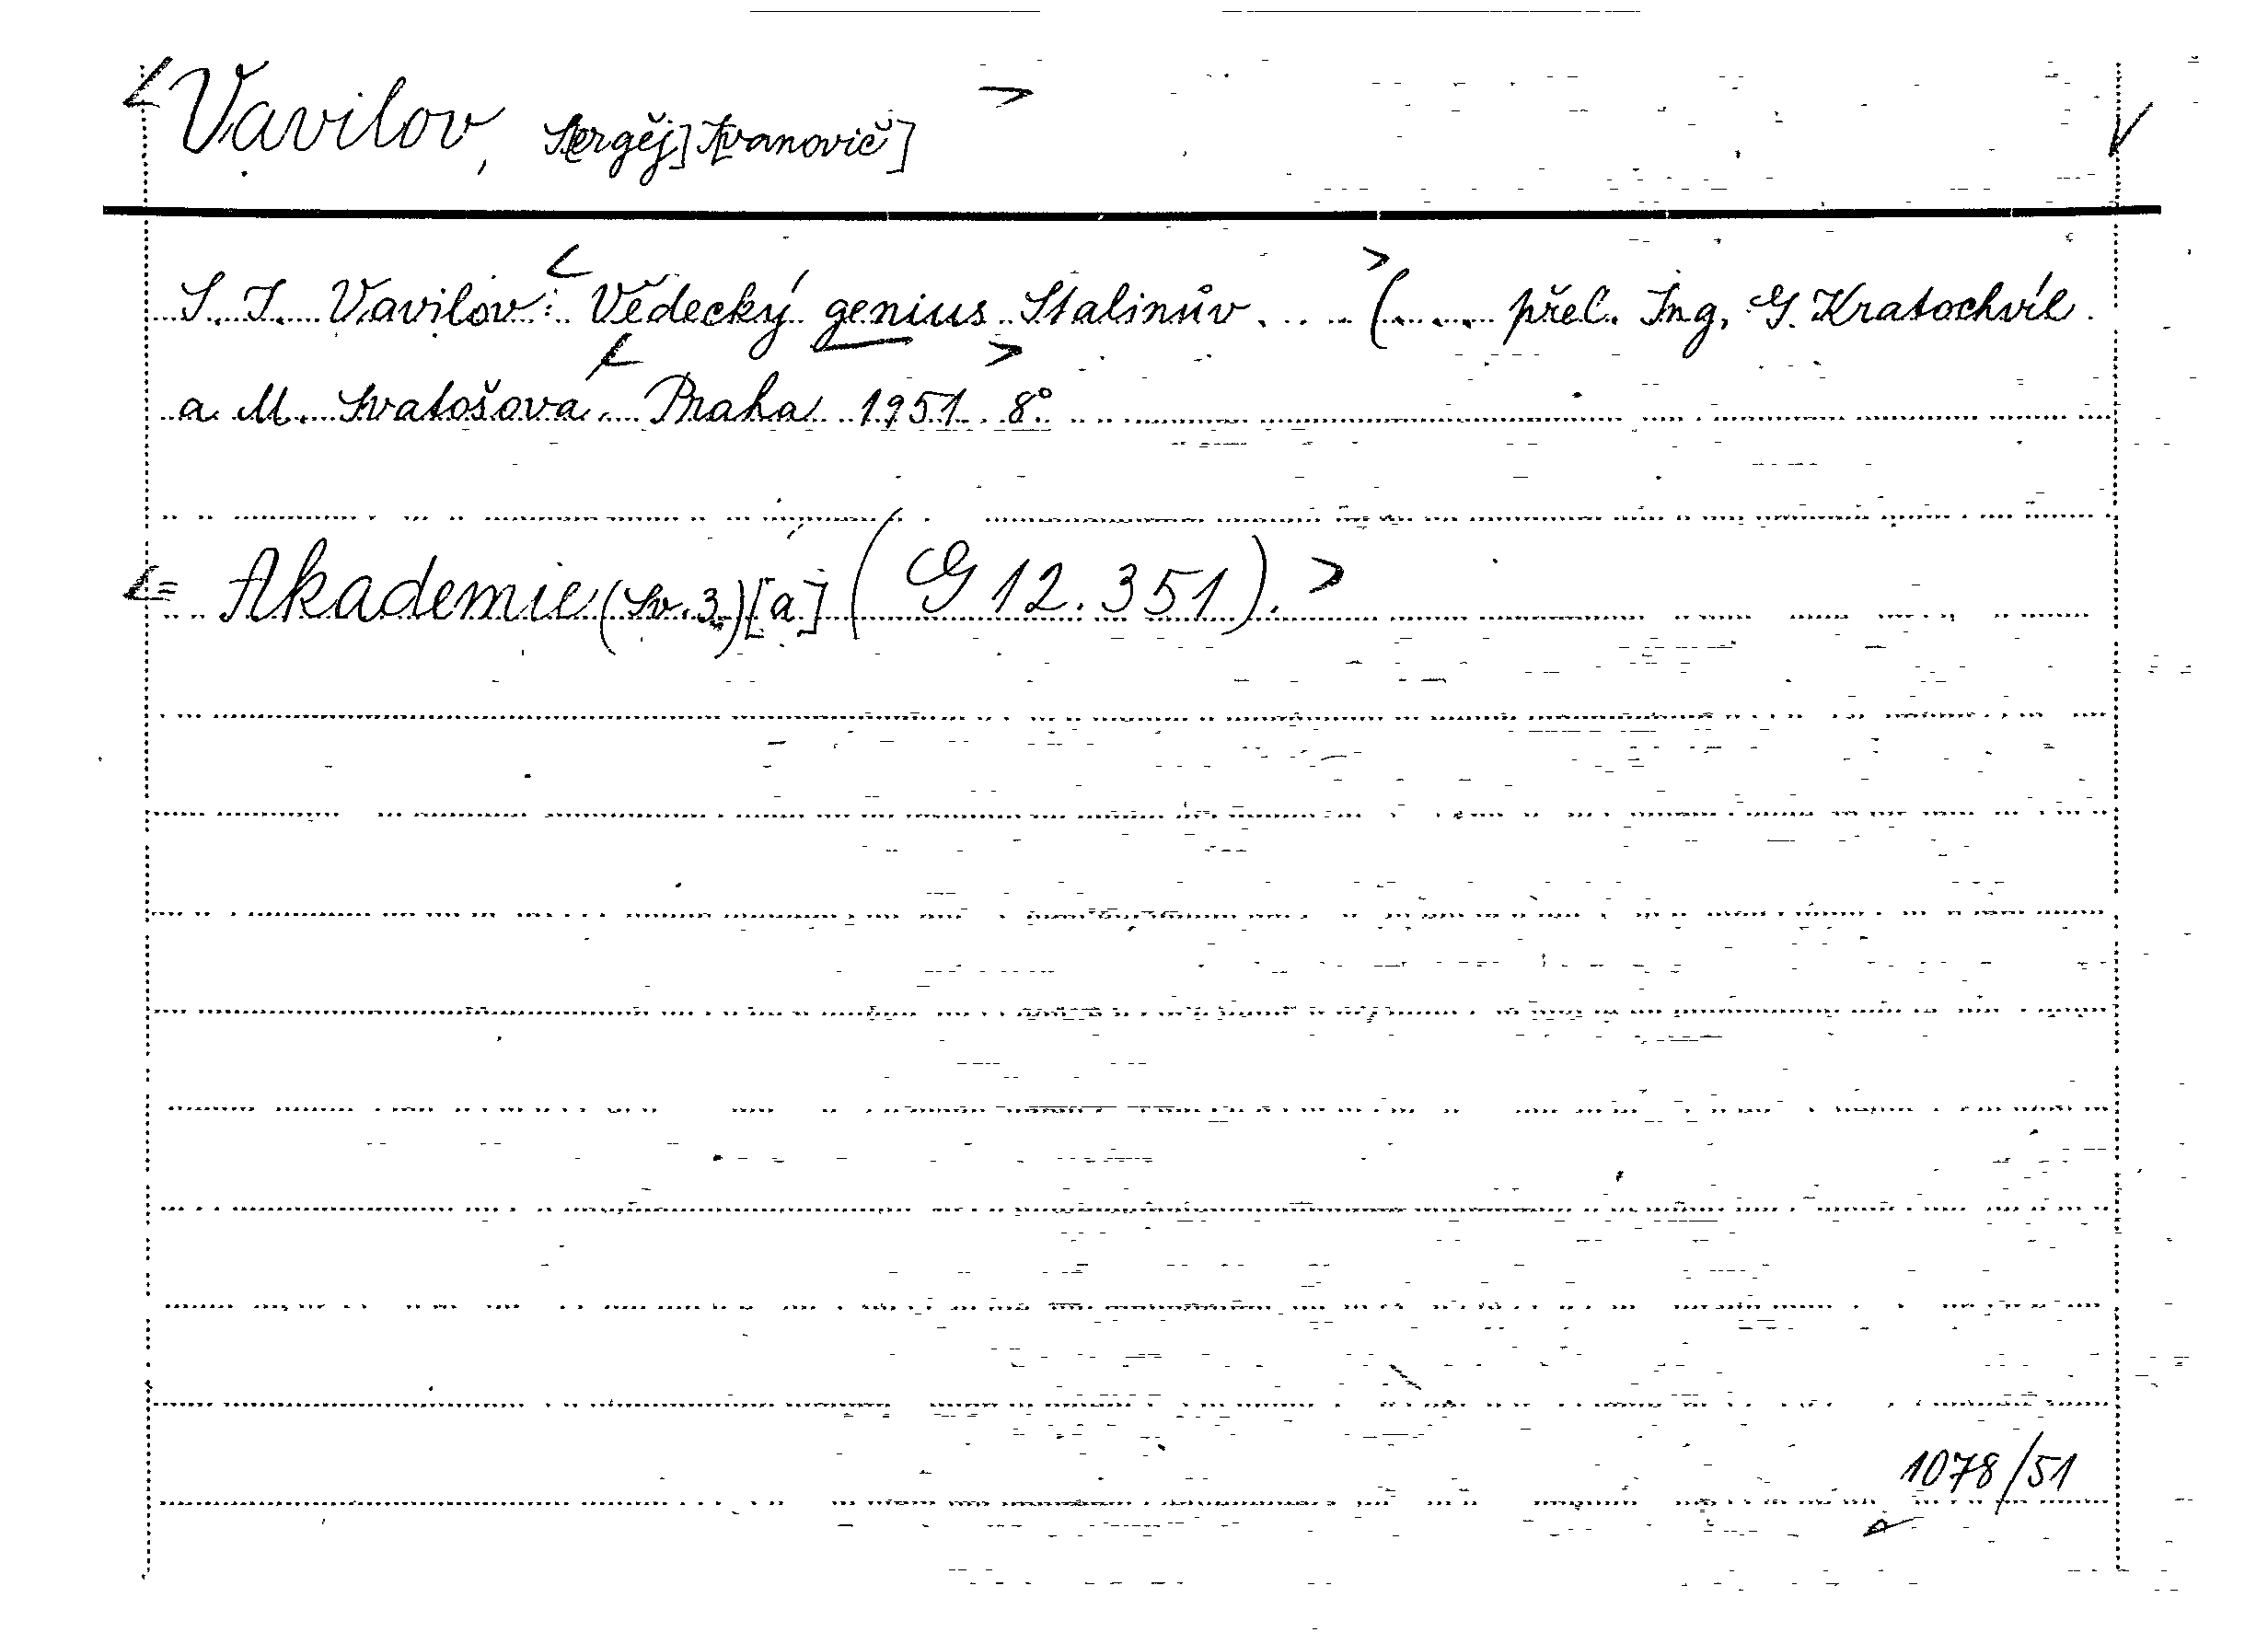 <Vavilov, S[ergěj] I[vanovič]>
S. I. Vavilov: <Vědecký genius Stalinův. ... >(.... přel. Ing. G. Kratochvíl
a M. Svatošová. <Praha 1951> 8°
<= Akademie (Sv. 3.) [a] (G 12.351). >
1078/51